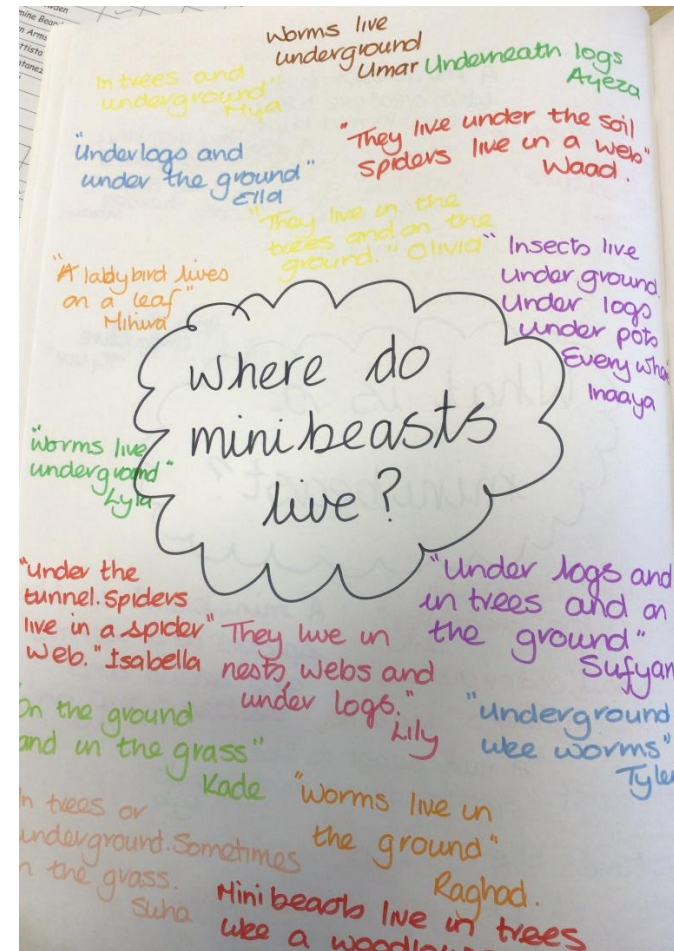 Worms live
underground
Umar
Underneath logs
Ayeza
In trees and
underground"
Mya
"They live under the soil
spiders live in a web"
Waad.
"Underlogs and
under the ground"
Ella
"They live in the
trees and on the
ground." Olivia
"Insects live
under ground.
Under logs
under pots
Every whe
Inaaya
"A ladybird lives
on a leaf"
Mihira
Where do
minibeasts
live?
"Worms live
underground"
Lyla
"under the
tunnel. Spiders
live in a spider
Web." Isabella
"Under logs and
in trees and on
the ground"
Sufyan
"They live in
nests, webs and
under logs."
Lily
"underground
like worms"
Tyle
On the ground
and in the grass"
Kade
"Worms live in
the ground"
Raghad.
In trees or
underground. Sometimes
in the grass.
Suha
Mini beasts live in trees
like a